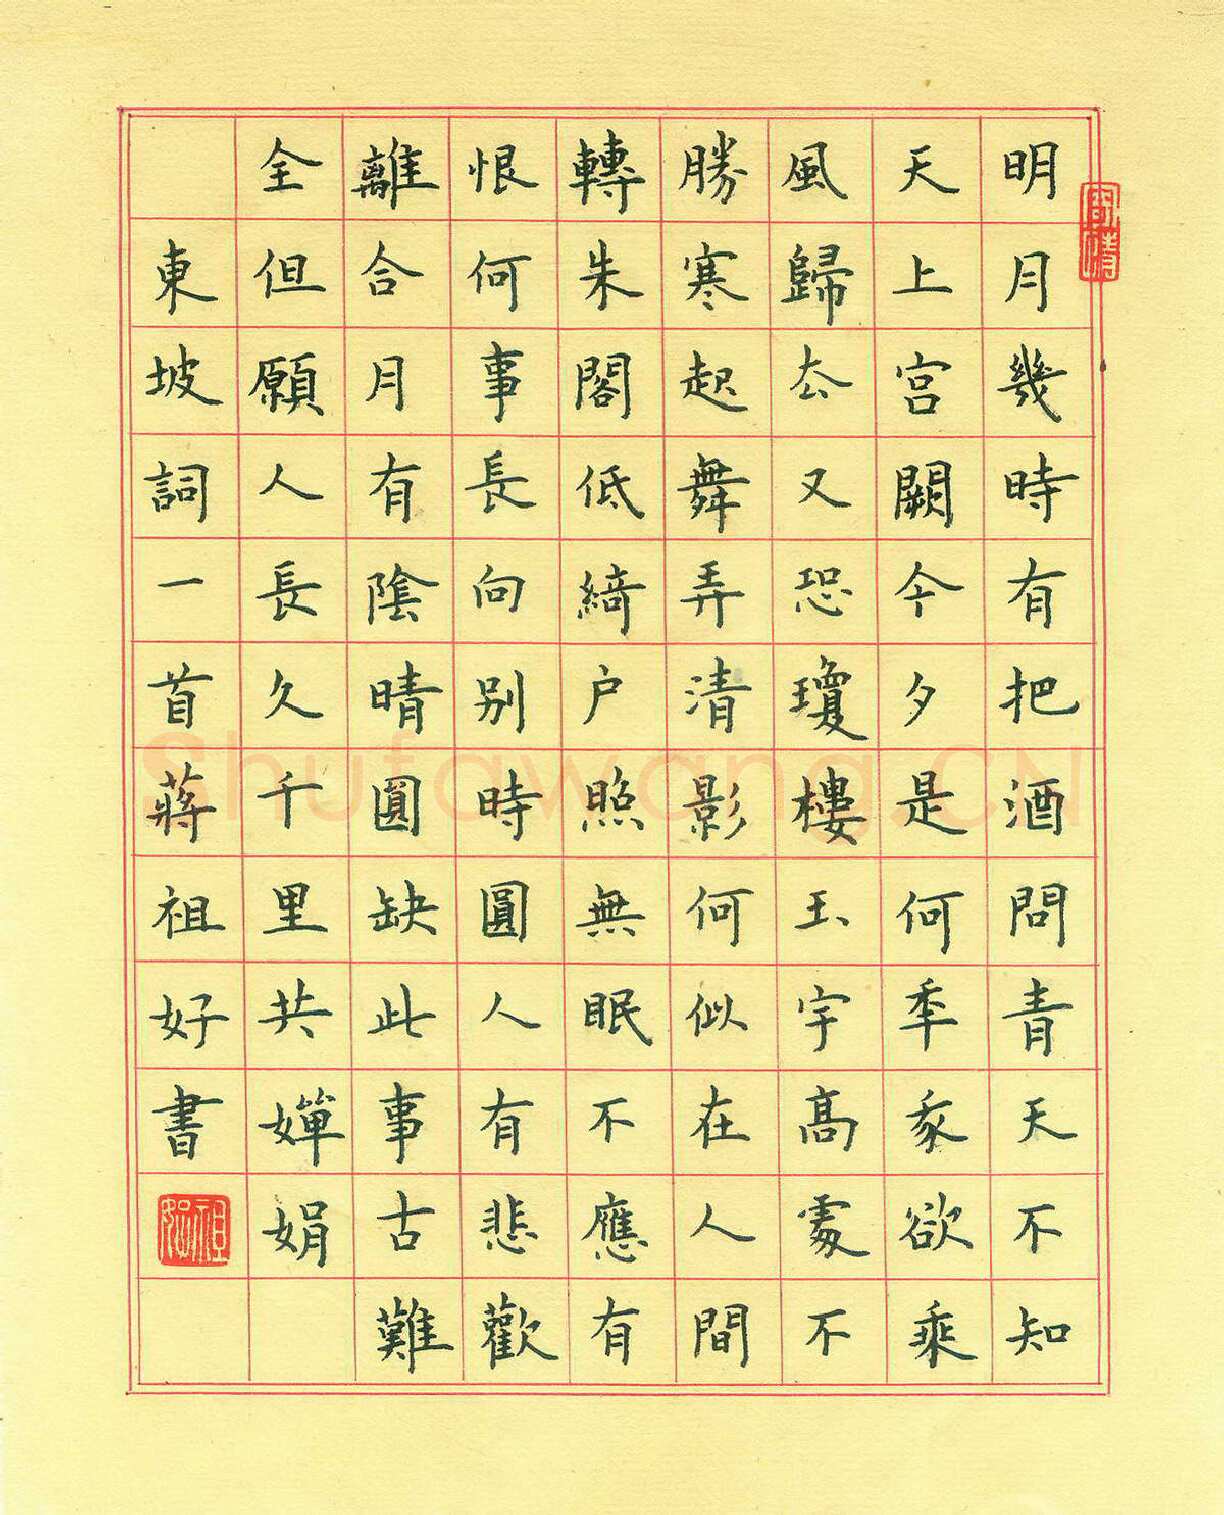 明月幾時有把酒問青天不知
天上宫闕今夕是何年我欲乘
風歸去又恐瓊樓玉宇高處不
勝寒起舞弄清影何似在人間
轉朱閣低綺户照無眠不應有
恨何事長向别時圓人有悲歡
離合月有陰晴圓缺此事古難
全但願人長久千里共嬋娟
東坡詞一首蔣祖好書
Shufawang.CN